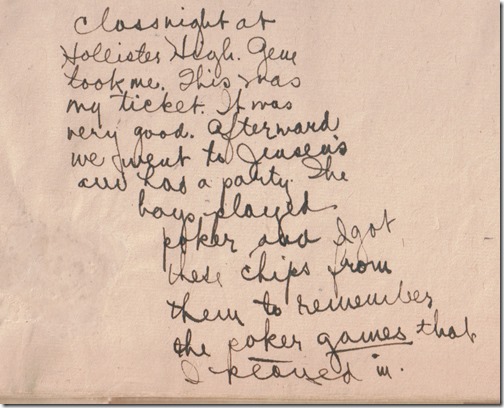 Classnight at
Hollister High. Gene
took me. This was
my ticket. It was
very good. Afterward
we went to Jensen's
and had a party. The
boys played
poker and I got
these chips from
them to remember
the poker games that
I in.